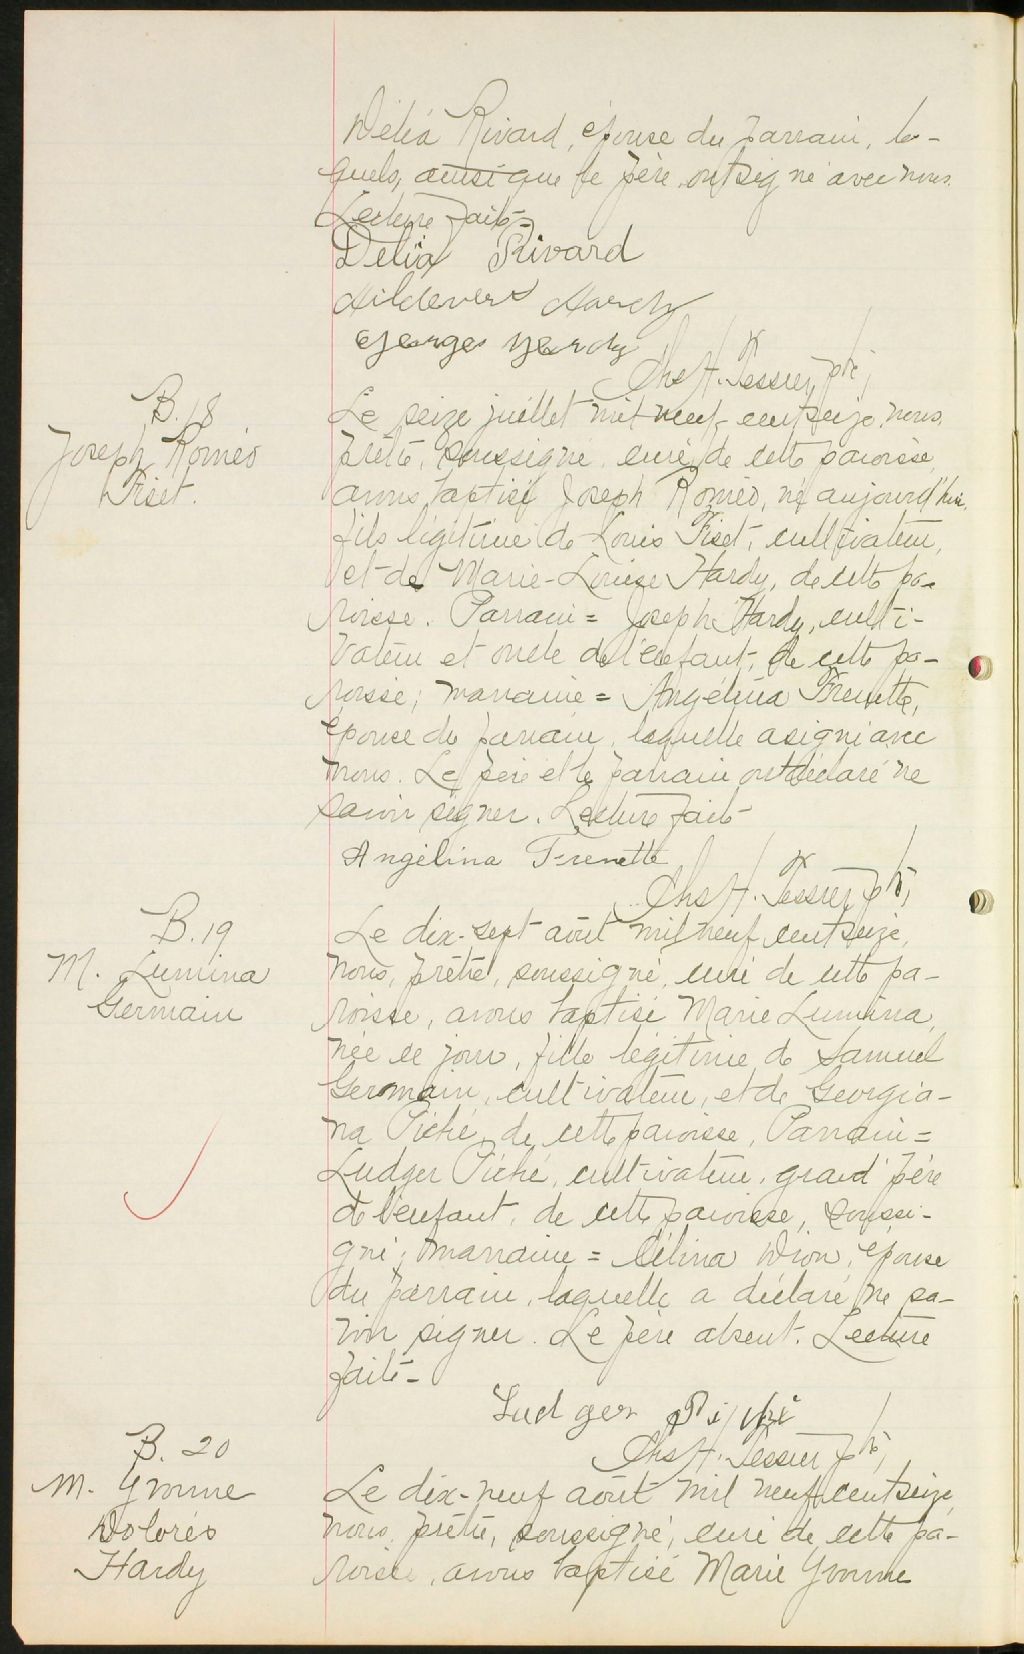 Délia Rivard, épouse du parrain, les-
quels, ainsi que le père ont signé avec nous.
Lecture faite
Délia Rivard
Hardy
Georges Hardy
Chs H. Tessier, ptre,
B. 18
Joseph Roméo
Fiset.
Le seize juillet mil neuf cent seize, nous,
prêtre, soussigné, curé de cette paroisse,
avons baptisé Joseph Roméo, né aujourd'hui,
fils légitime de Louis Fiset, cultivateur,
et de Marie-Louise Hardy, de cette pa-
roisse. Parrain = Joseph Hardy, culti-
vateur et oncle de l'enfant, de cette pa-
roisse; marraine = Angélina Frenette,
épouse du parrain, laquelle a signé avec
nous. Le père et le parrain ont déclaré ne
savoir signer. Lecture faite
Angélina Frenette
Chs H. Tessier, ptre,
B. 19
M. Lumina
Germain
Le dix-sept août mil neuf cent seize,
nous, prêtre, soussigné, curé de cette pa-
roisse, avons baptisé Marie Lumina,
née ce jour, fille légitime de Samuel
Germain, cultivateur, et de Georgia-
na Piché, de cette paroisse, Parrain =
Ludger Piché, cultivateur, grand'père
de l'enfant, de cette paroisse, soussi-
gné; marraine = Célina Dion, épouse
du parrain, laquelle a déclaré ne sa-
voir signer. Le père absent. Lecture
faite-
Ludger Piché
Chs H. Tessier ptre,
B. 20
M. Yvonne
Dolorès
Hardy
Le dix-neuf août mil neuf cent seize,
nous, prêtre, soussigné, curé de cette pa-
roisse, avons baptisé Marie Yvonne